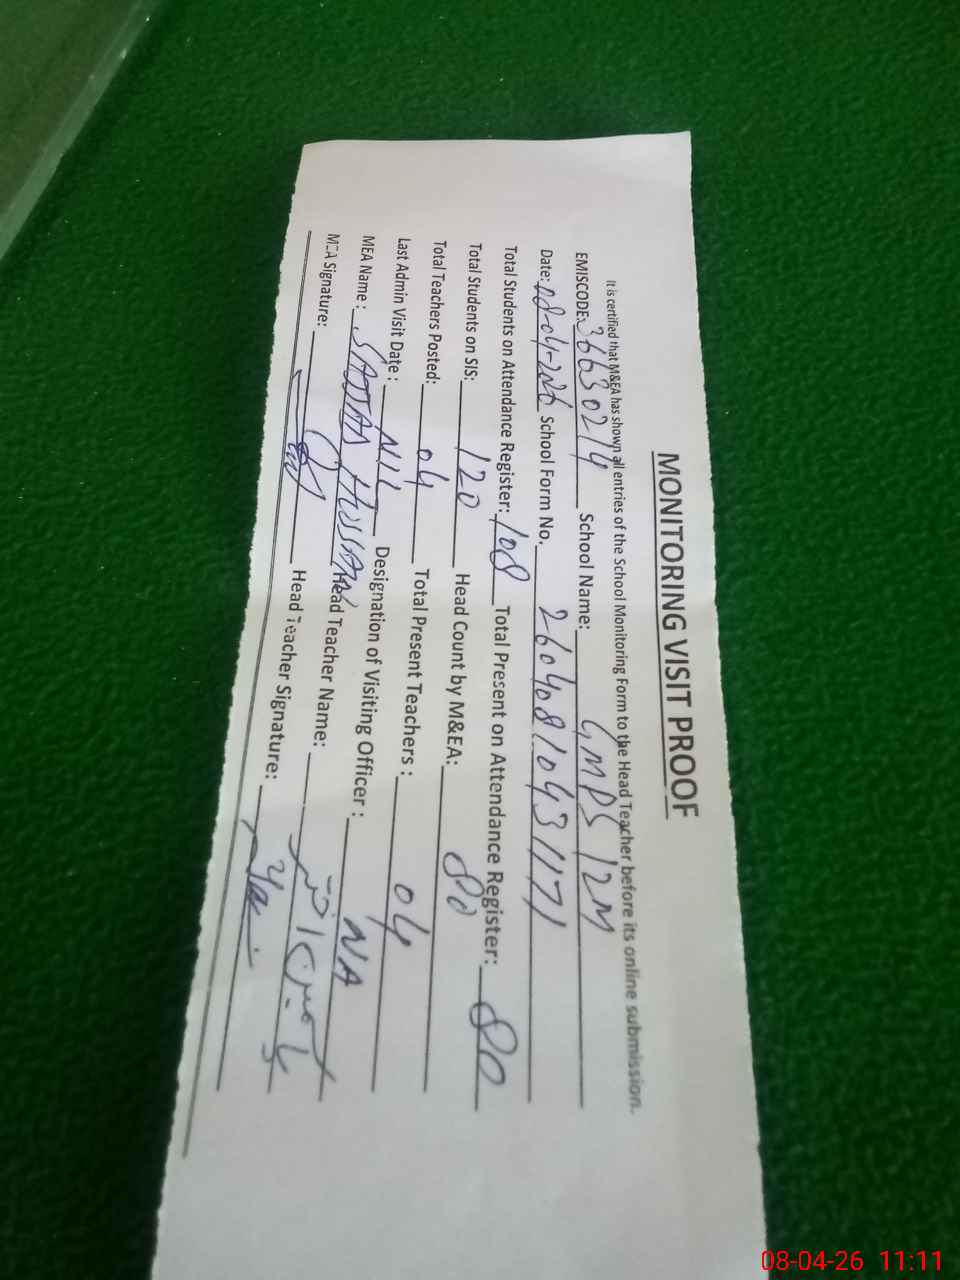 MONITORING VISIT PROOF
It is certified that M&EA has shown all entries of the School Monitoring Form to the Head Teacher before its online submission.
EMISCODE: 36630214 School Name: GMPS 12M
Date: 08-04-2026 School Form No. 260408104311171
Total Students on Attendance Register: 108 Total Present on Attendance Register: 80
Total Students on SIS: 120 Head Count by M&EA: 80
Total Teachers Posted: 04 Total Present Teachers: 04
Last Admin Visit Date: NIL Designation of Visiting Officer: NA
MEA Name: SAJJAD HUSSAIN Head Teacher Name:
MEA Signature: Head Teacher Signature:
08-04-26 11:11